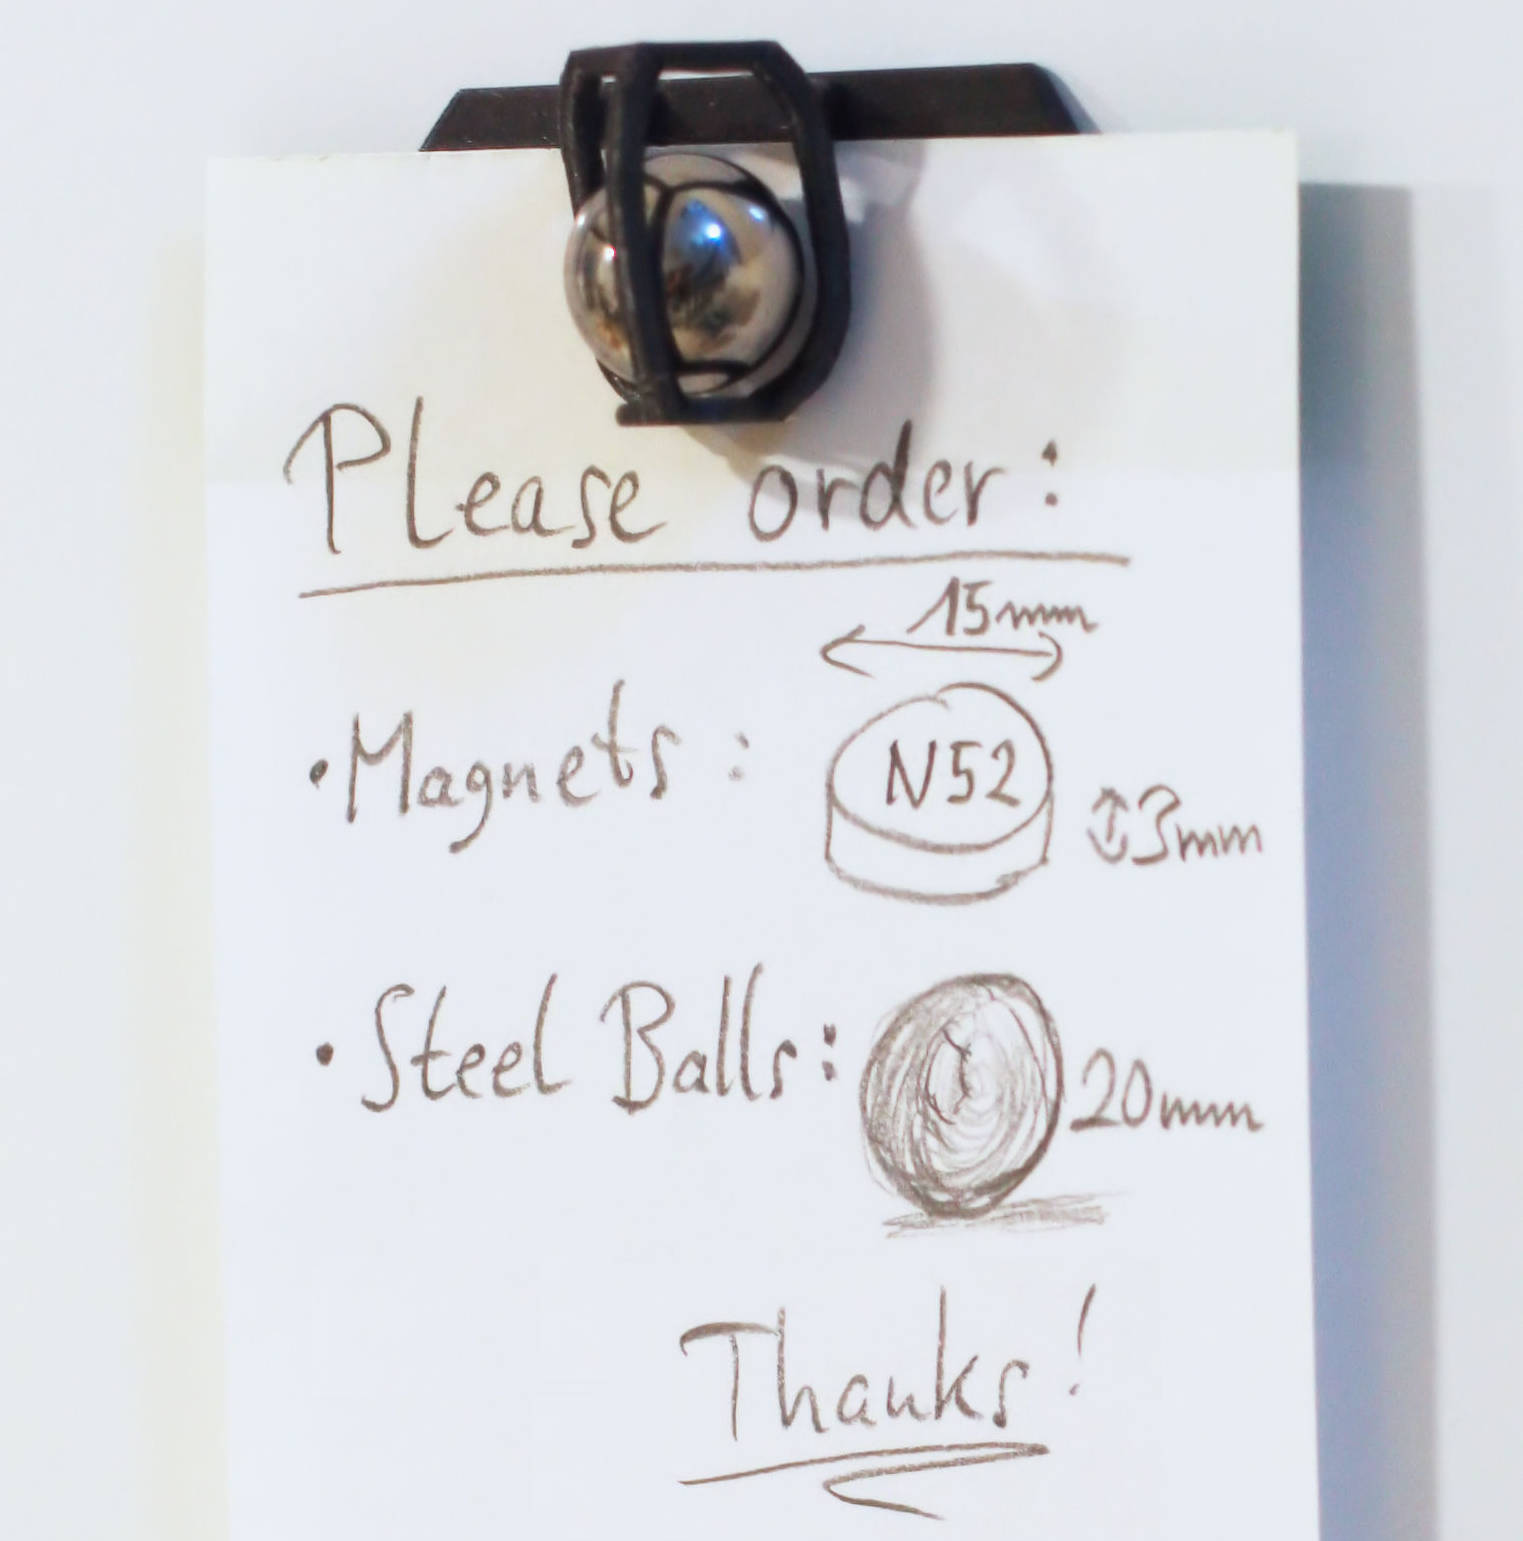 Please order:
15mm
• Magnets: N52 3mm
• Steel Balls: 20mm
Thanks!